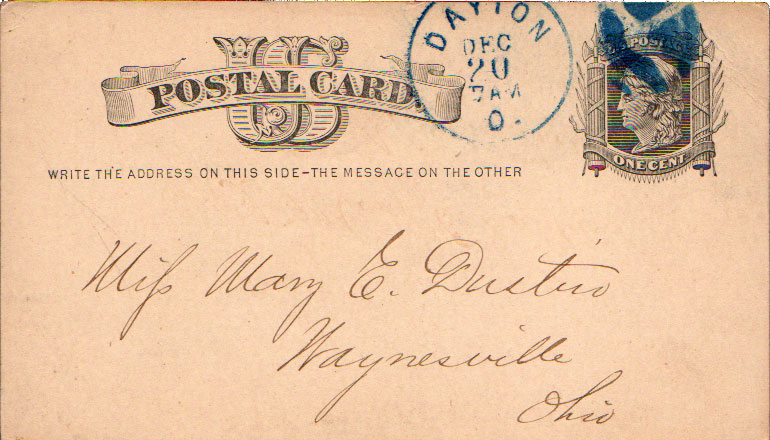 US
POSTAL CARD.
DAYTON
DEC
20
7AM
O.
U.S. POSTAGE
ONE CENT
WRITE THE ADDRESS ON THIS SIDE–THE MESSAGE ON THE OTHER
Miſs Mary E. Dustin
Waynesville
Ohio